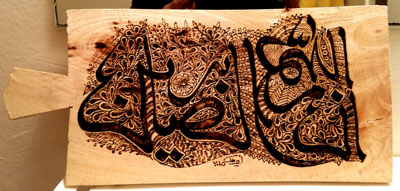 ان الله مع الصابرين